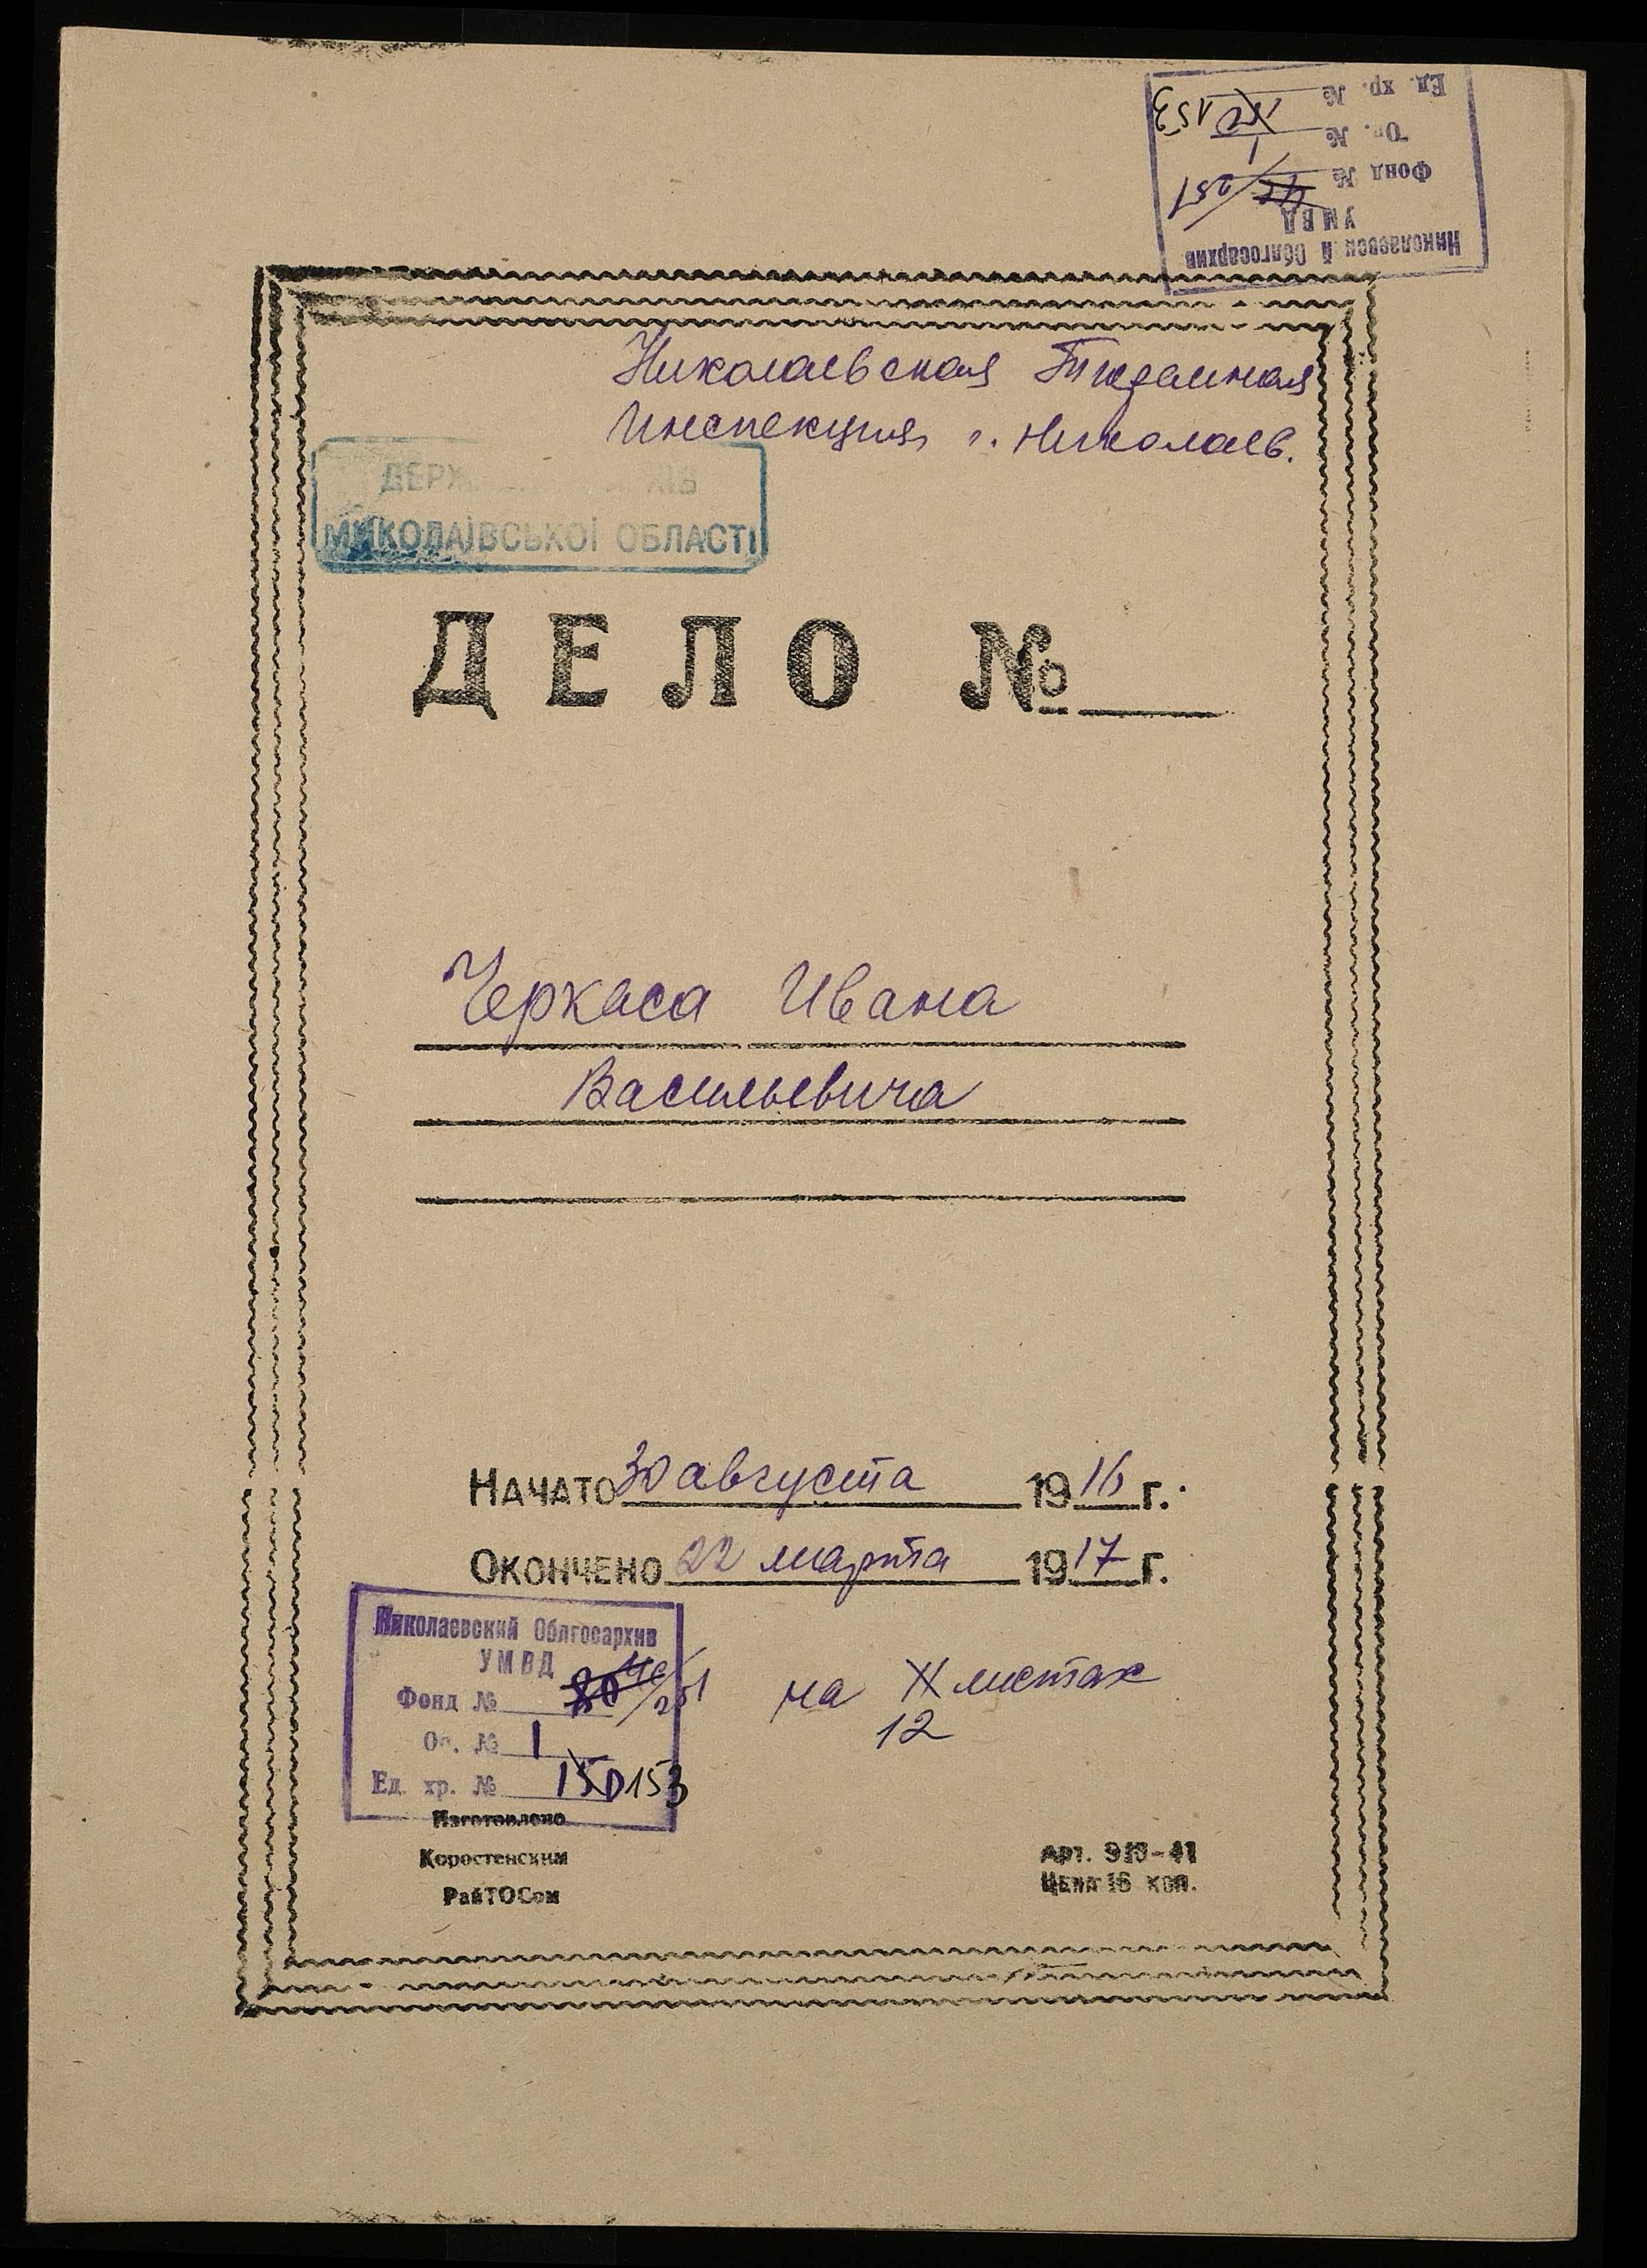 Николаевский Облгосархив
УМВД
Фонд № 251
Оп. № 1
Ед. хр. № 153
Николаевская Тюремная
Инспекция г. Николаев.
ДЕРЖ
МИКОЛАЇВСЬКОЇ ОБЛАСТІ
ДЕЛО №
Черкаса Ивана
Васильевича
НАЧАТО 30 августа 1916 г.
ОКОНЧЕНО 22 марта 1917 г.
Николаевский Облгосархив
УМВД
Фонд № 251
Оп. № 1
Ед. хр. № 150 153
на листах
12
Изготовлено
Коростенским
РайТОСом
Арт. 913-41
Цена 16 коп.